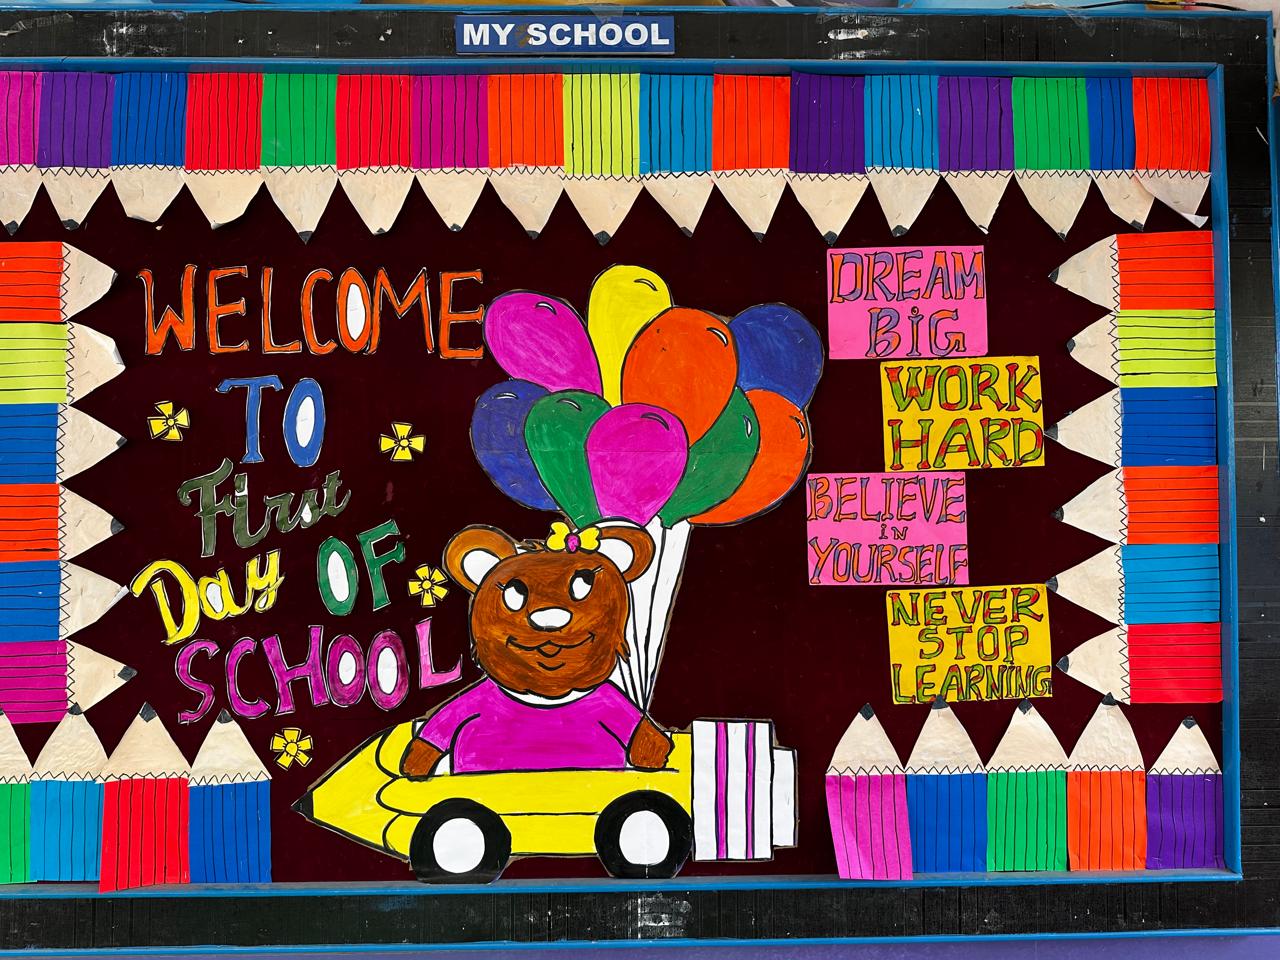 MY SCHOOL
WELCOME
TO
First
Day OF
SCHOOL
DREAM
BiG
WORK
HARD
BELIEVE
iN
YOURSELF
NEVER
STOP
LEARNING